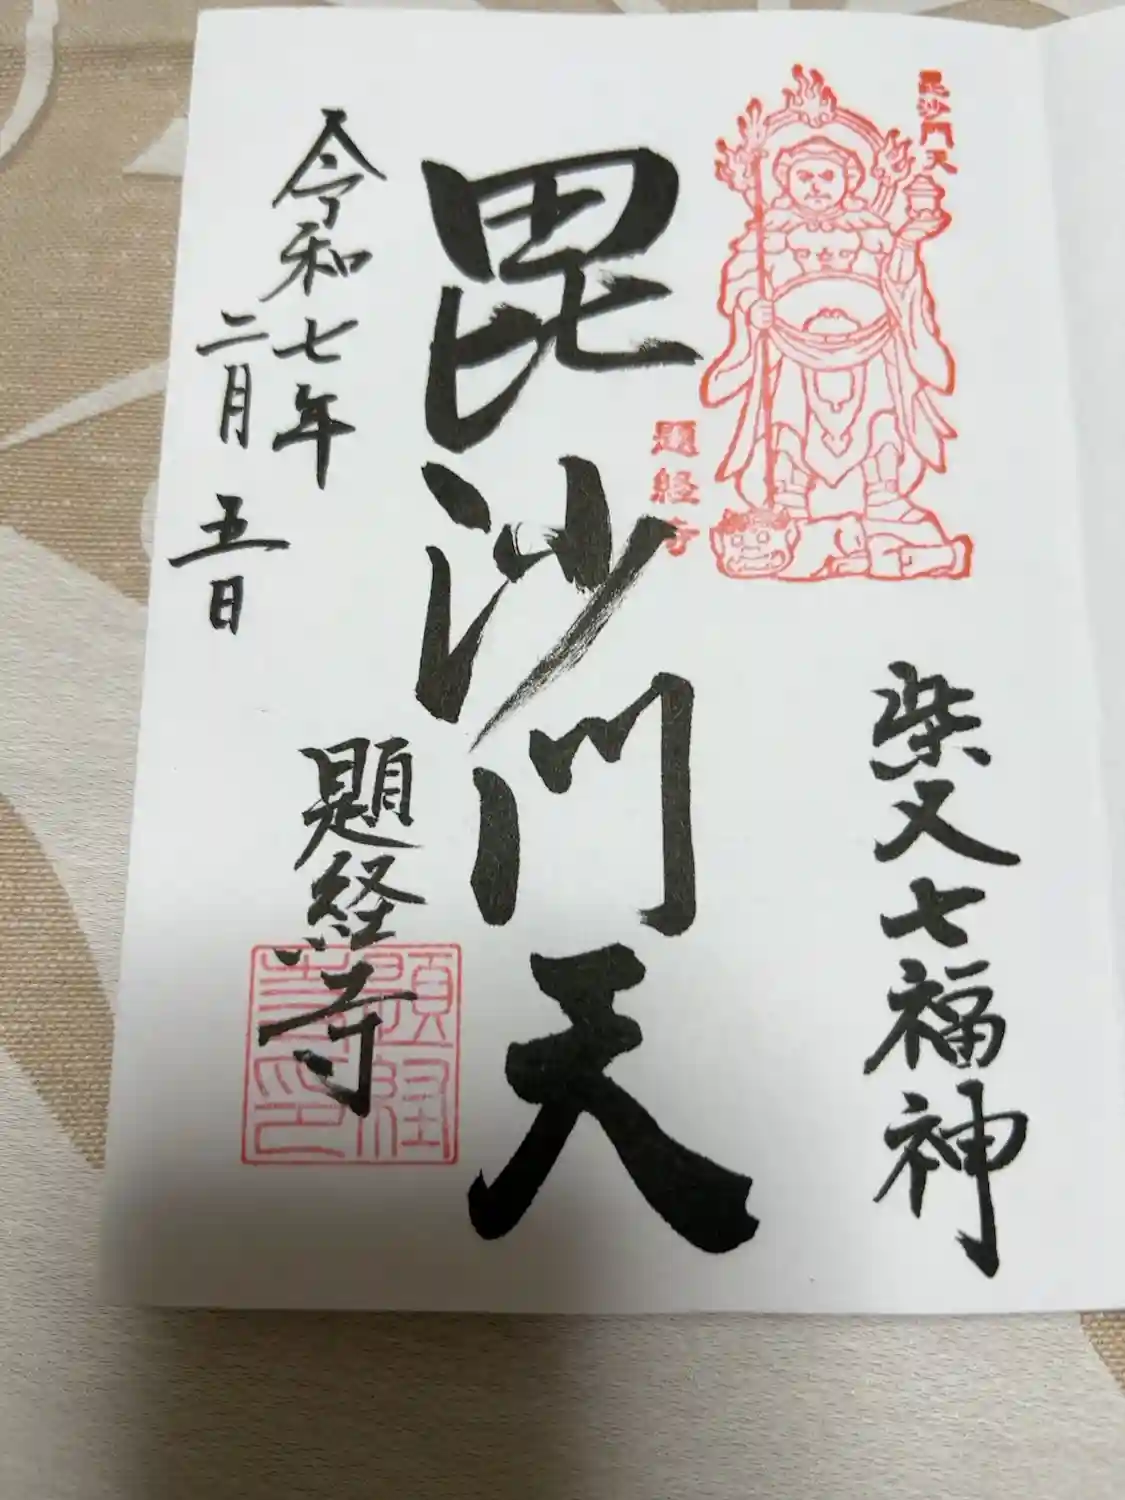 毘沙門天
柴又七福神
題経寺
毘沙門天
令和七年
二月五日
題経寺
題経寺印